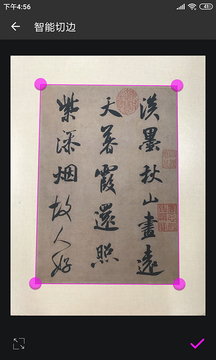 下午4:56
智能切边
淡墨秋山畫遠
天暮霞還照
紫添烟故人好